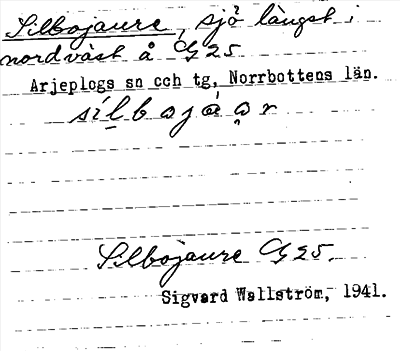 Silbojaure, sjö längst i
nordväst å G 25
Arjeplogs sn och tg, Norrbottens län.
Silbojaure G 25.
Sigvard Wallström, 1941.